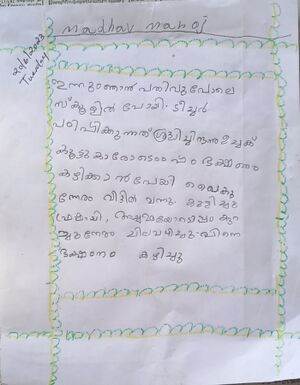 madhav manoj
20/6/2023
Tuesday
ഇന്നുഞാൻ പതിവുപോലെ
സ്കൂളിൽ പോയി. ടീച്ചർ
പഠിപ്പിക്കുന്നത് ശ്രദ്ധിച്ചിരുന്നു. ഉച്ചക്ക്
കൂട്ടുകാരോടൊപ്പം ഭക്ഷണം
കഴിക്കാൻ പേയി വൈകു
ന്നേരം വീട്ടിൽ വന്നു. കുളിച്ചു
അമ്മയോടൊപ്പം കുറ
ച്ചുനേരം ചിലവഴിച്ചു. പിന്നെ
ഭക്ഷണം കഴിച്ചു